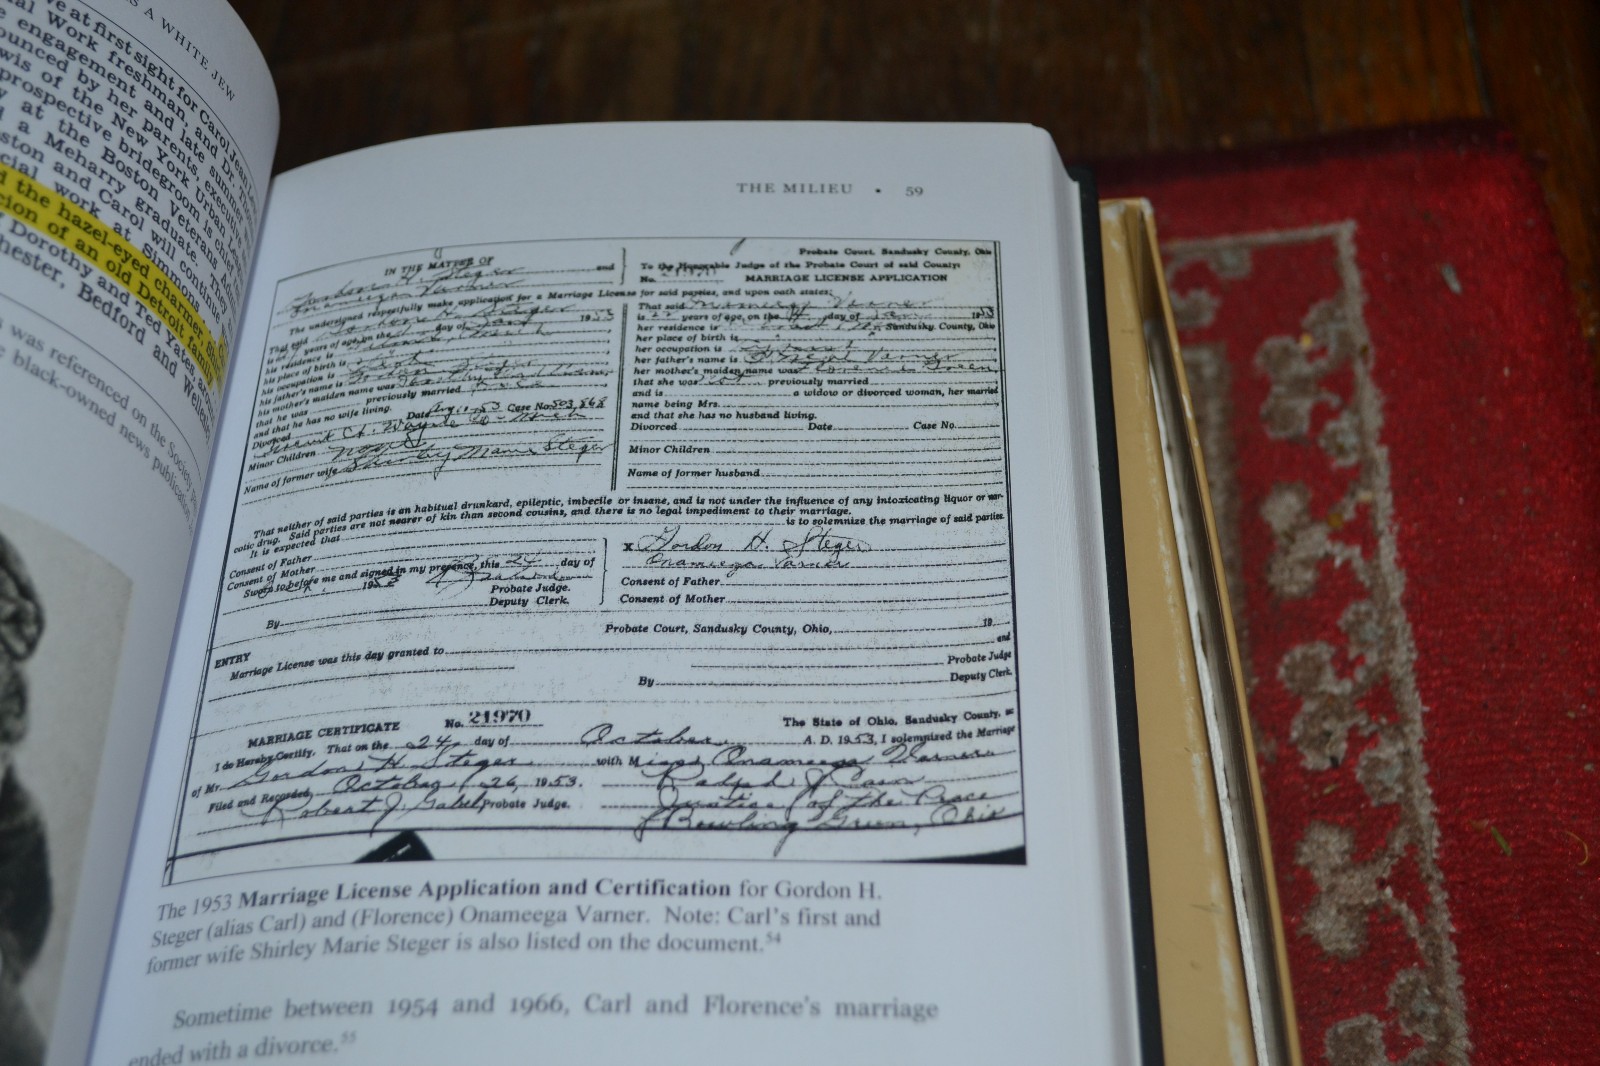 S A WHITE JEW
ve at first sight for Carol Jean
al Work freshman, and Dr. Tho
engagement and late summer
ounced by her parents, executive
wis of the New York Urban League
prospective bridegroom is chief
at the Boston Veterans Adm
a Meharry graduate. They
ston and Carol will continue
cial work at Simmons
d the hazel-eyed charmer
cion of an old Detroit family
Dorothy and Ted Yates
hester, Bedford and Welle
s was referenced on the Society
e black-owned news publication
THE MILIEU • 59
IN THE MATTER OF
and
The undersigned respectfully make application for a Marriage License for said parties, and upon oath states:
That said
years of age, on the day of 1953
his residence is
his place of birth is
his occupation is
his father's name is
his mother's maiden name was
that he was previously married
and that he has no wife living.
Divorced Date Case No. 503,868
Wayne Co. Mich
Minor Children none
Name of former wife Shirley Marie Steger
Probate Court, Sandusky County, Ohio
To the Honorable Judge of the Probate Court of said County:
No. MARRIAGE LICENSE APPLICATION
That said Onameega Varner
is years of age, on the day of 1953
her residence is Sandusky County, Ohio
her place of birth is
her occupation is
her father's name is Varner
her mother's maiden name was Florence Green
that she was not previously married
and is a widow or divorced woman, her married
name being Mrs.
and that she has no husband living.
Divorced Date Case No.
Minor Children
Name of former husband
That neither of said parties is an habitual drunkard, epileptic, imbecile or insane, and is not under the influence of any intoxicating liquor or nar-
cotic drug. Said parties are not nearer of kin than second cousins, and there is no legal impediment to their marriage.
It is expected that is to solemnize the marriage of said parties.
Consent of Father
Consent of Mother
Sworn to before me and signed in my presence, this 24 day of
1953
Probate Judge.
Deputy Clerk.
By
X Gordon H. Steger
Onameega Varner
Consent of Father
Consent of Mother
Probate Court, Sandusky County, Ohio, 19
ENTRY
Marriage License was this day granted to and
Probate Judge
By Deputy Clerk.
MARRIAGE CERTIFICATE No. 21970 The State of Ohio, Sandusky County,
I do Hereby Certify, That on the 24 day of October A. D. 1953, I solemnized the Marriage
of Mr. Gordon H. Steger with Miss Onameega Varner
Filed and Recorded, October 26, 1953. Ralph J Cain
Robert J. Gabel Probate Judge. Justice of the Peace
Bowling Green, Ohio
The 1953 Marriage License Application and Certification for Gordon H.
Steger (alias Carl) and (Florence) Onameega Varner. Note: Carl's first and
former wife Shirley Marie Steger is also listed on the document.54
Sometime between 1954 and 1966, Carl and Florence's marriage
ended with a divorce.55